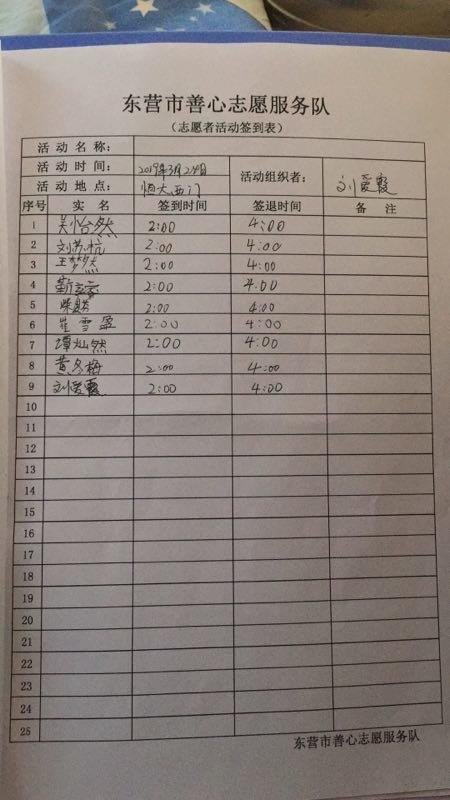 东营市善心志愿服务队
（志愿者活动签到表）
活动名称：
活动时间： 2019年3月24日 活动组织者： 刘爱霞
活动地点： 恒大西门
序号 实名 签到时间 签退时间 备注
1 吴怡然 2:00 4:00
2 刘苏杭 2:00 4:00
3 王梦 2:00 4:00
4 2:00 4:00
5 2:00 4:00
6 崔雪盈 2:00 4:00
7 灿然 2:00 4:00
8 黄冬梅 2:00 4:00
9 刘爱霞 2:00 4:00
10
11
12
13
14
15
16
17
18
19
20
21
22
23
24
25
东营市善心志愿服务队